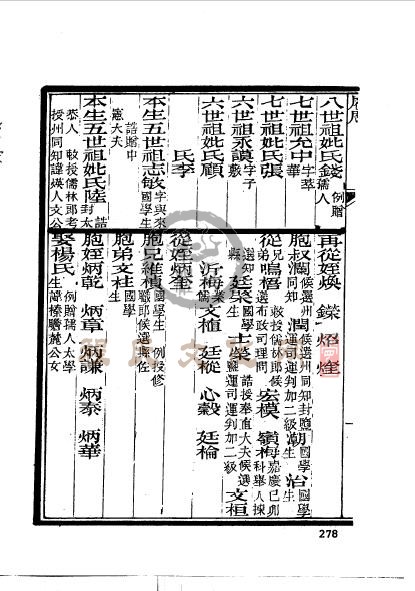 八世祖妣氏錢 例贈孺人
七世祖允中 字莘華
七世祖妣氏張
六世祖永謨 字子敷
六世祖妣氏顧
氏李
本生五世祖志敏 字與來國學生
誥贈中憲大夫
本生五世祖妣氏陸 誥封太
恭人 敕授儒林郎考授州同知諱煐人文公
再從姪煥 炤 煃
胞叔瀾 候選州同知 潤 候選州同知封鹽運司運判加二級 潮 國學生 治 國學生
從兄弟鳴梧 敕授儒林郎候選布政司理問 宏模 嶺梅 嘉慶己卯科舉人揀
選知縣 廷棻 國學生 士棻 誥授奉直大夫候選鹽運司運判加二級 文桓
沂梅 業儒 文植 廷樅 心穀 廷棆
從姪炳奎
胞兄維楨 國學生 例授修職郎候選縣佐
胞弟文柱 國學生
胞姪炳乾 炳章 炳謙 炳泰 炳華
娶楊氏 例贈孺人太學生諱榛瞻麓公女
278